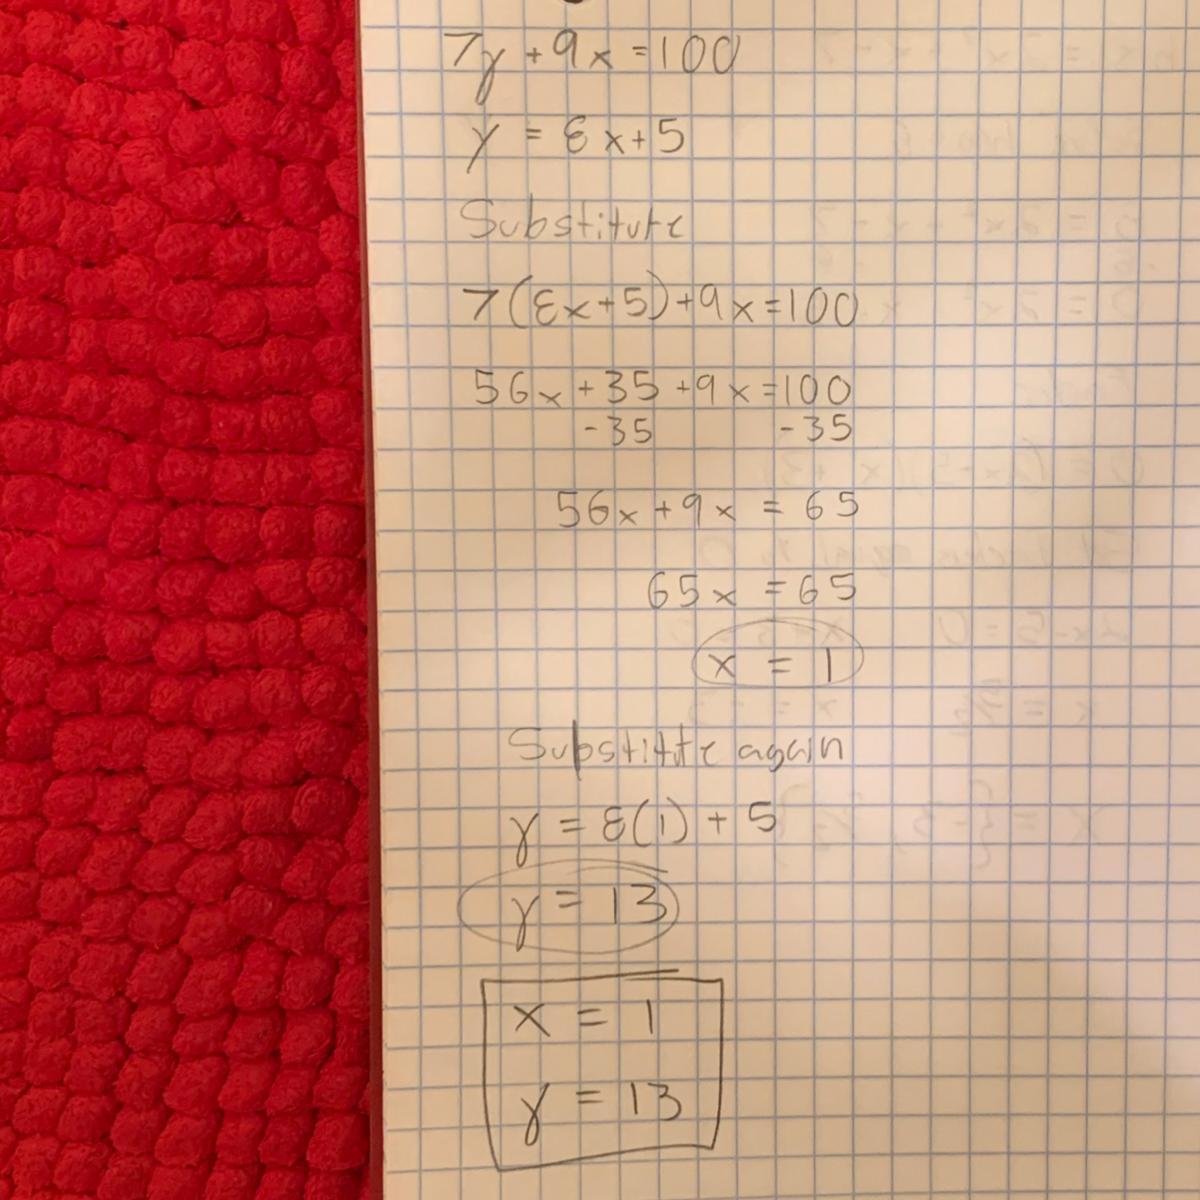 7y + 9x = 100
y = 8x + 5
Substitute
7(8x + 5) + 9x = 100
56x + 35 + 9x = 100
-35 -35
56x + 9x = 65
65x = 65
x = 1
Substitute again
y = 8(1) + 5
y = 13
x = 1
y = 13